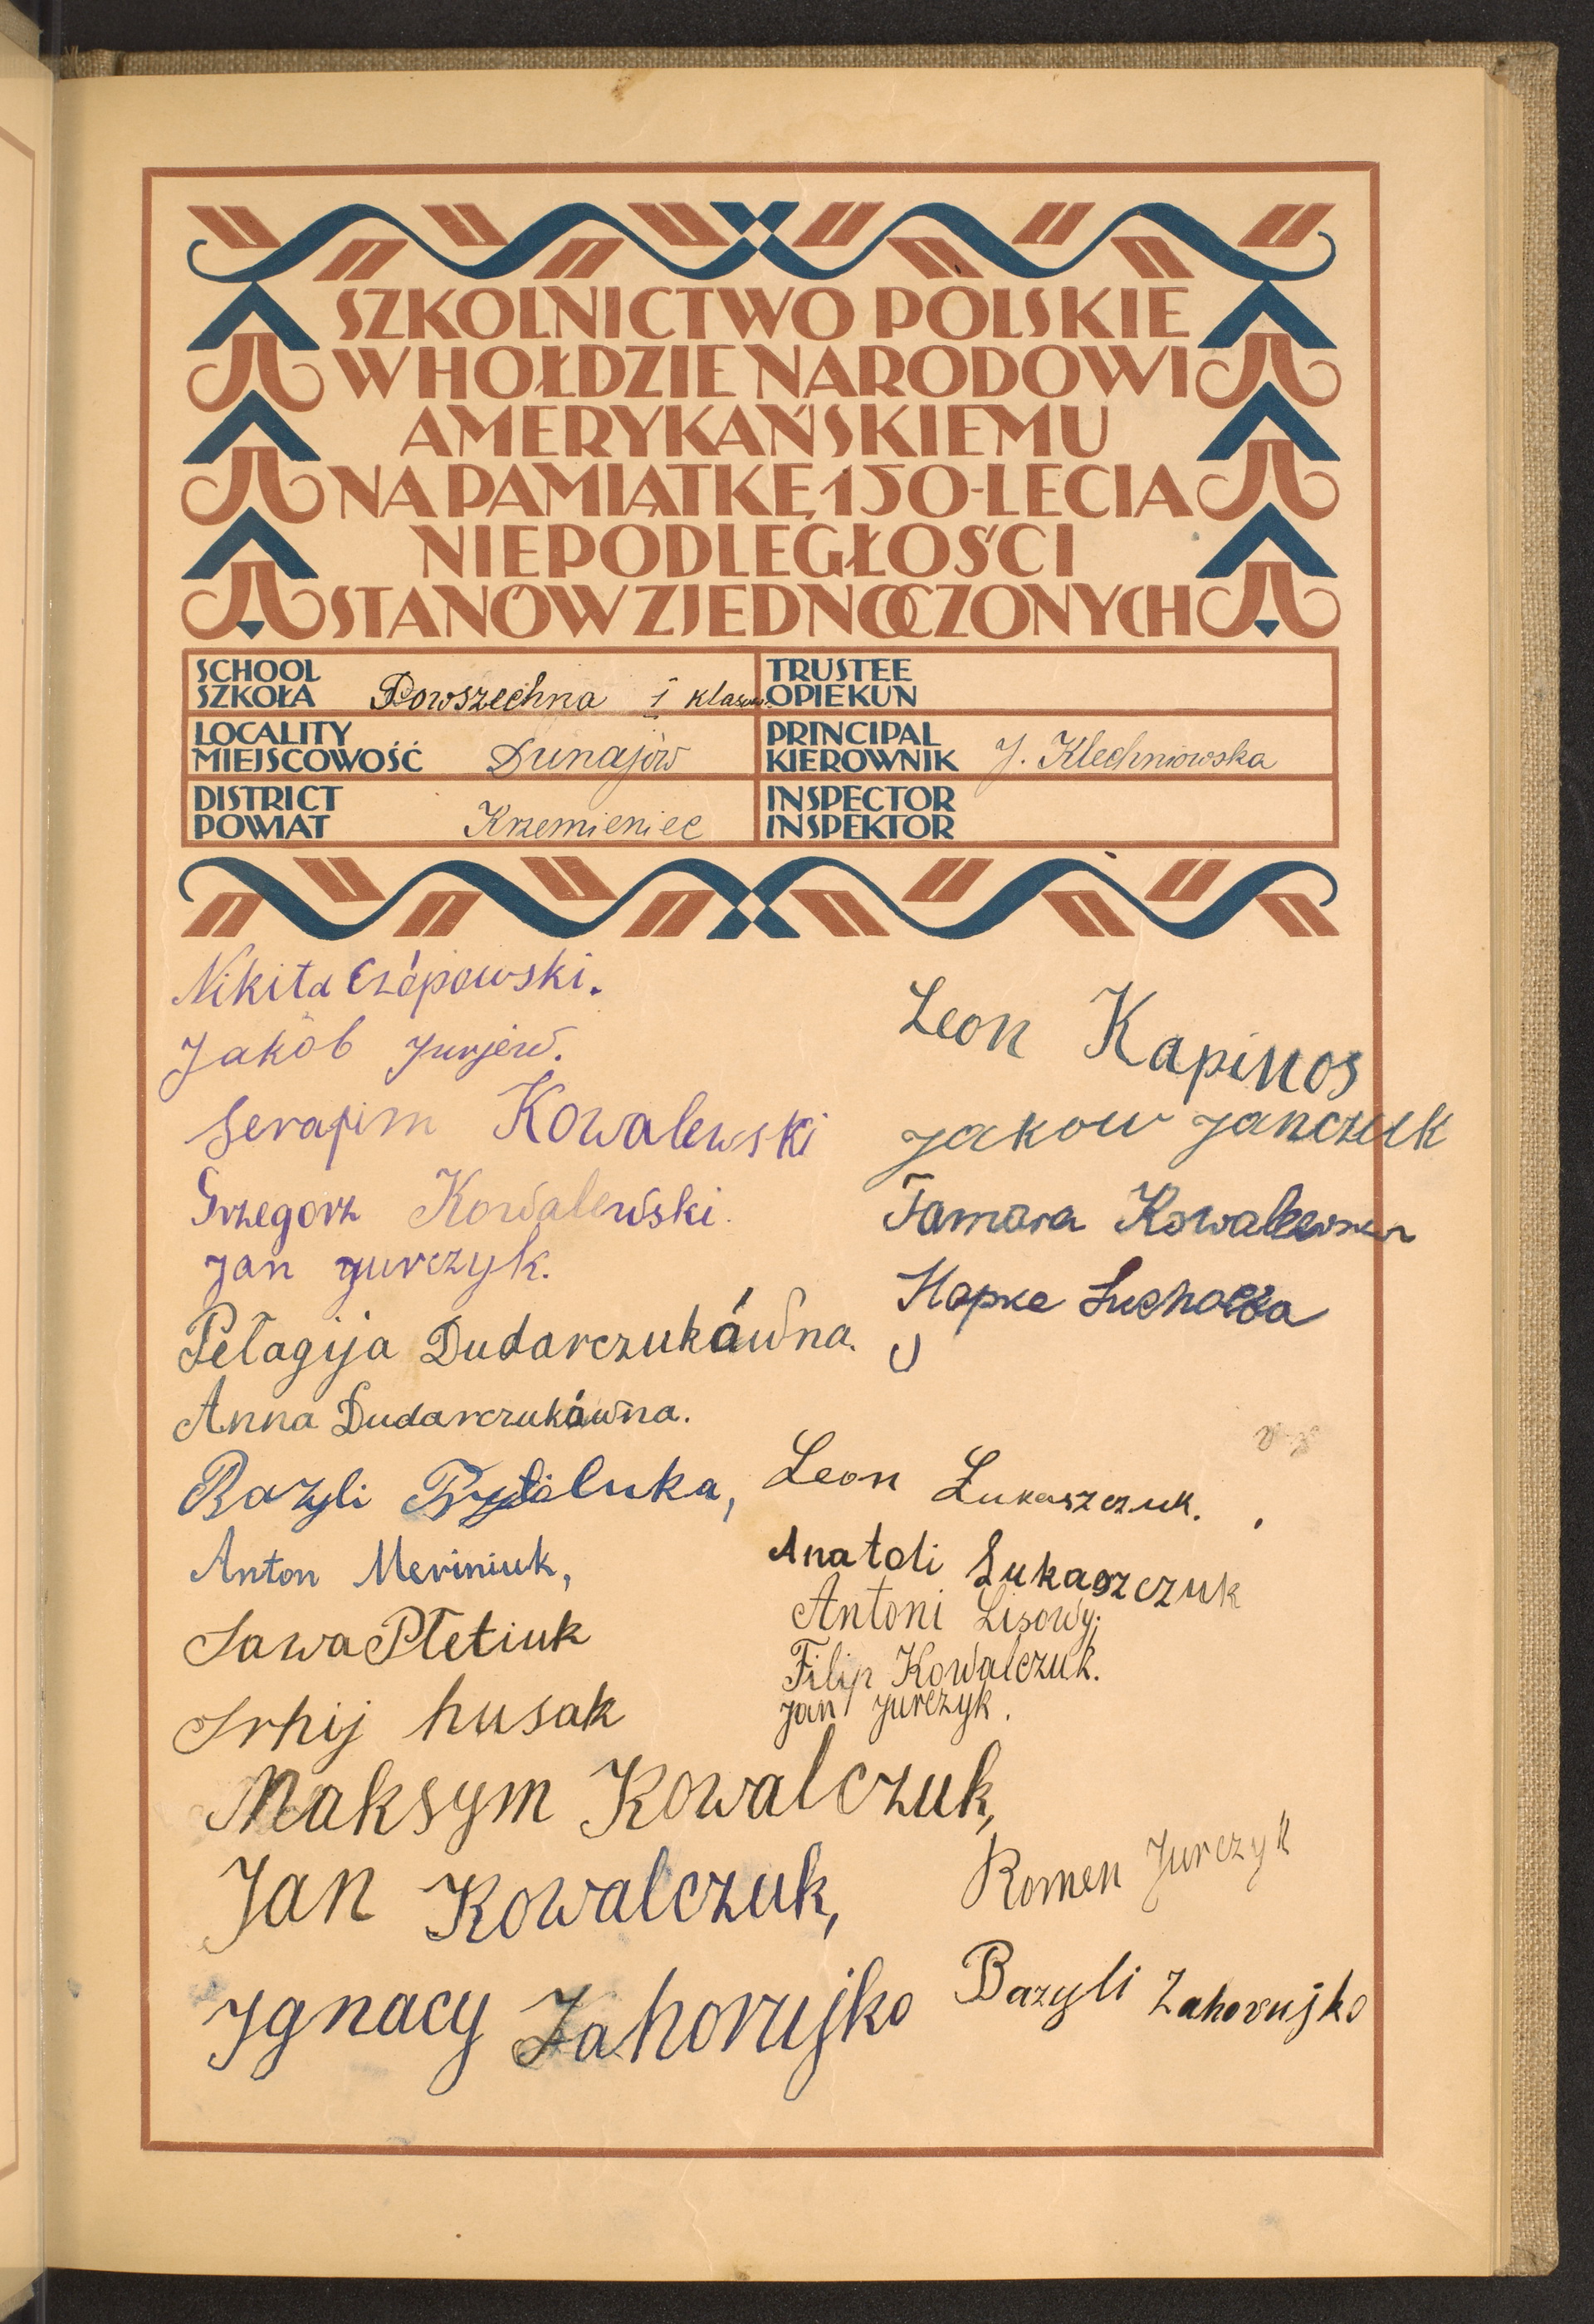 SZKOLNICTWO POLSKIE
W HOŁDZIE NARODOWI
AMERYKAŃSKIEMU
NA PAMIĄTKĘ 150-LECIA
NIEPODLEGŁOŚCI
STANÓW ZJEDNOCZONYCH
SCHOOL
SZKOŁA Powszechna 1 klasow.
TRUSTEE
OPIEKUN
LOCALITY
MIEJSCOWOŚĆ Dunajów
PRINCIPAL
KIEROWNIK J. Klechniowska
DISTRICT
POWIAT Krzemieniec
INSPECTOR
INSPEKTOR
Nikita Czópowski.
Jakób Jurjew.
Serafim Kowalewski
Grzegorz Kowalewski.
Jan Jurczyk.
Pełagija Dudarczukówna.
Anna Dudarczukówna.
Bazyli
Anton Meriniuk,
Sawa Płetiuk
Srhij husak
Maksym Kowalczuk,
Jan Kowalczuk,
Ignacy Zahorujko
Leon Kapinos
Jakow Janczuk
Tamara Kowalewska
Leon Łukaszczuk.
Anatoli Łukaszczuk
Antoni Lisowyj
Filip Kowalczuk.
Jan Jurczyk.
Romen Jurczyk
Bazyli Zahorujko